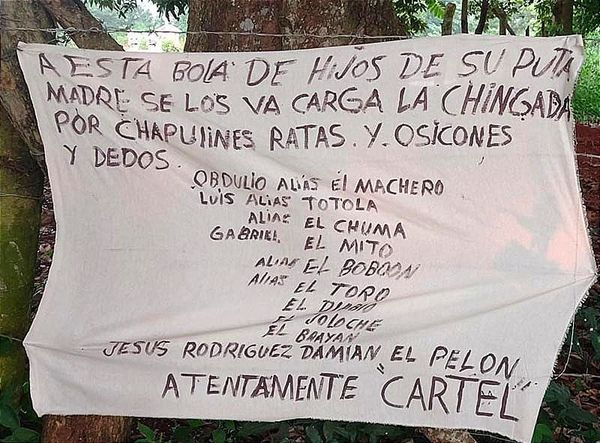 A ESTA BOLA DE HIJOS DE SU PUTA
MADRE SE LOS VA CARGA LA CHINGADA
POR CHAPULINES RATAS. Y. OSICONES
Y DEDOS.
OBDULIO ALIAS EL MACHERO
LUIS ALIAS TOTOLA
ALIAS EL CHUMA
GABRIEL EL MITO
ALIAS EL BOBOON
ALIAS EL TORO
EL DIABLO
EL JOLOCHE
EL BRAYAN
JESUS RODRIGUEZ DAMIAN "EL PELON"
ATENTAMENTE CARTEL